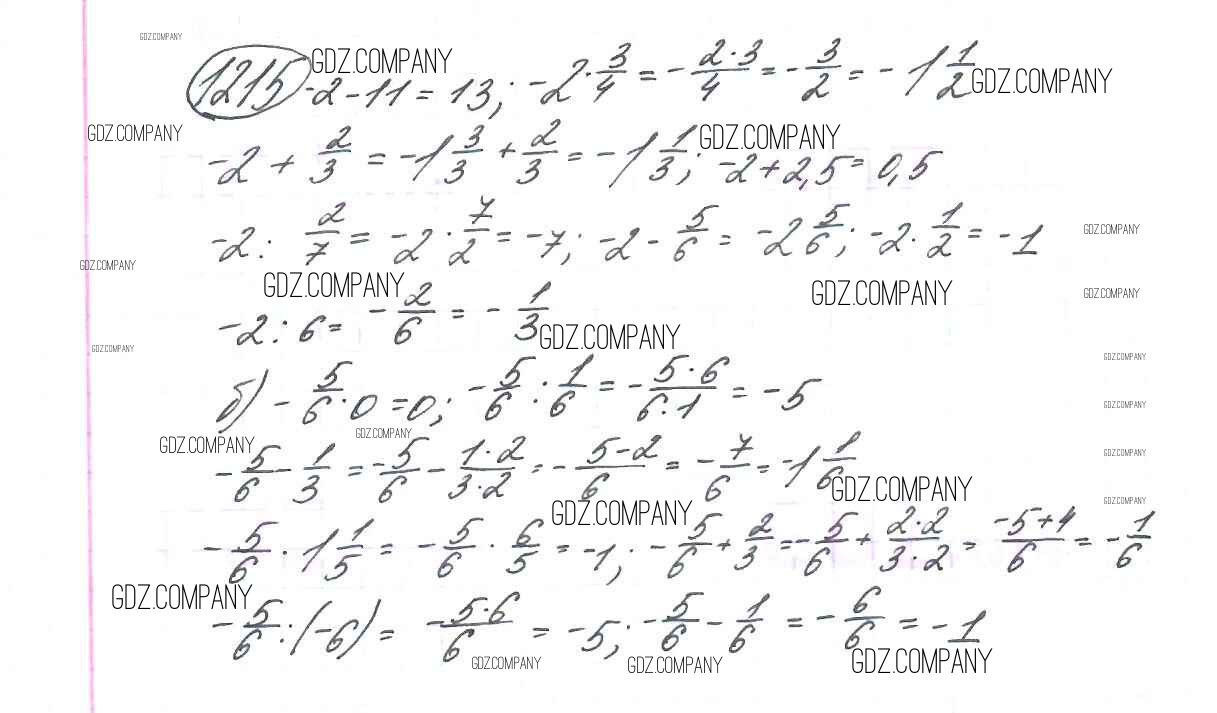 GDZ.COMPANY
1215 GDZ.COMPANY -2-11=13; -2·3/4=-2·3/4=-3/2=-1 1/2 GDZ.COMPANY
GDZ.COMPANY GDZ.COMPANY
-2+2/3=-1 3/3+2/3=-1 1/3; -2+2,5=0,5
-2:2/7=-2·7/2=-7; -2-5/6=-2 5/6; -2·1/2=-1 GDZ.COMPANY
GDZ.COMPANY
GDZ.COMPANY GDZ.COMPANY GDZ.COMPANY
-2:6=-2/6=-1/3 GDZ.COMPANY
GDZ.COMPANY GDZ.COMPANY
б) -5/6·0=0; -5/6:1/6=-5·6/6·1=-5 GDZ.COMPANY
GDZ.COMPANY GDZ.COMPANY GDZ.COMPANY
-5/6-1/3=-5/6-1·2/3·2=-5-2/6=-7/6=-1 1/6 GDZ.COMPANY
GDZ.COMPANY GDZ.COMPANY
-5/6·1 1/5=-5/6·6/5=-1; -5/6+2/3=-5/6+2·2/3·2=-5+4/6=-1/6
GDZ.COMPANY
-5/6:(-6)=-5·6/6=-5; -5/6-1/6=-6/6=-1
GDZ.COMPANY GDZ.COMPANY GDZ.COMPANY